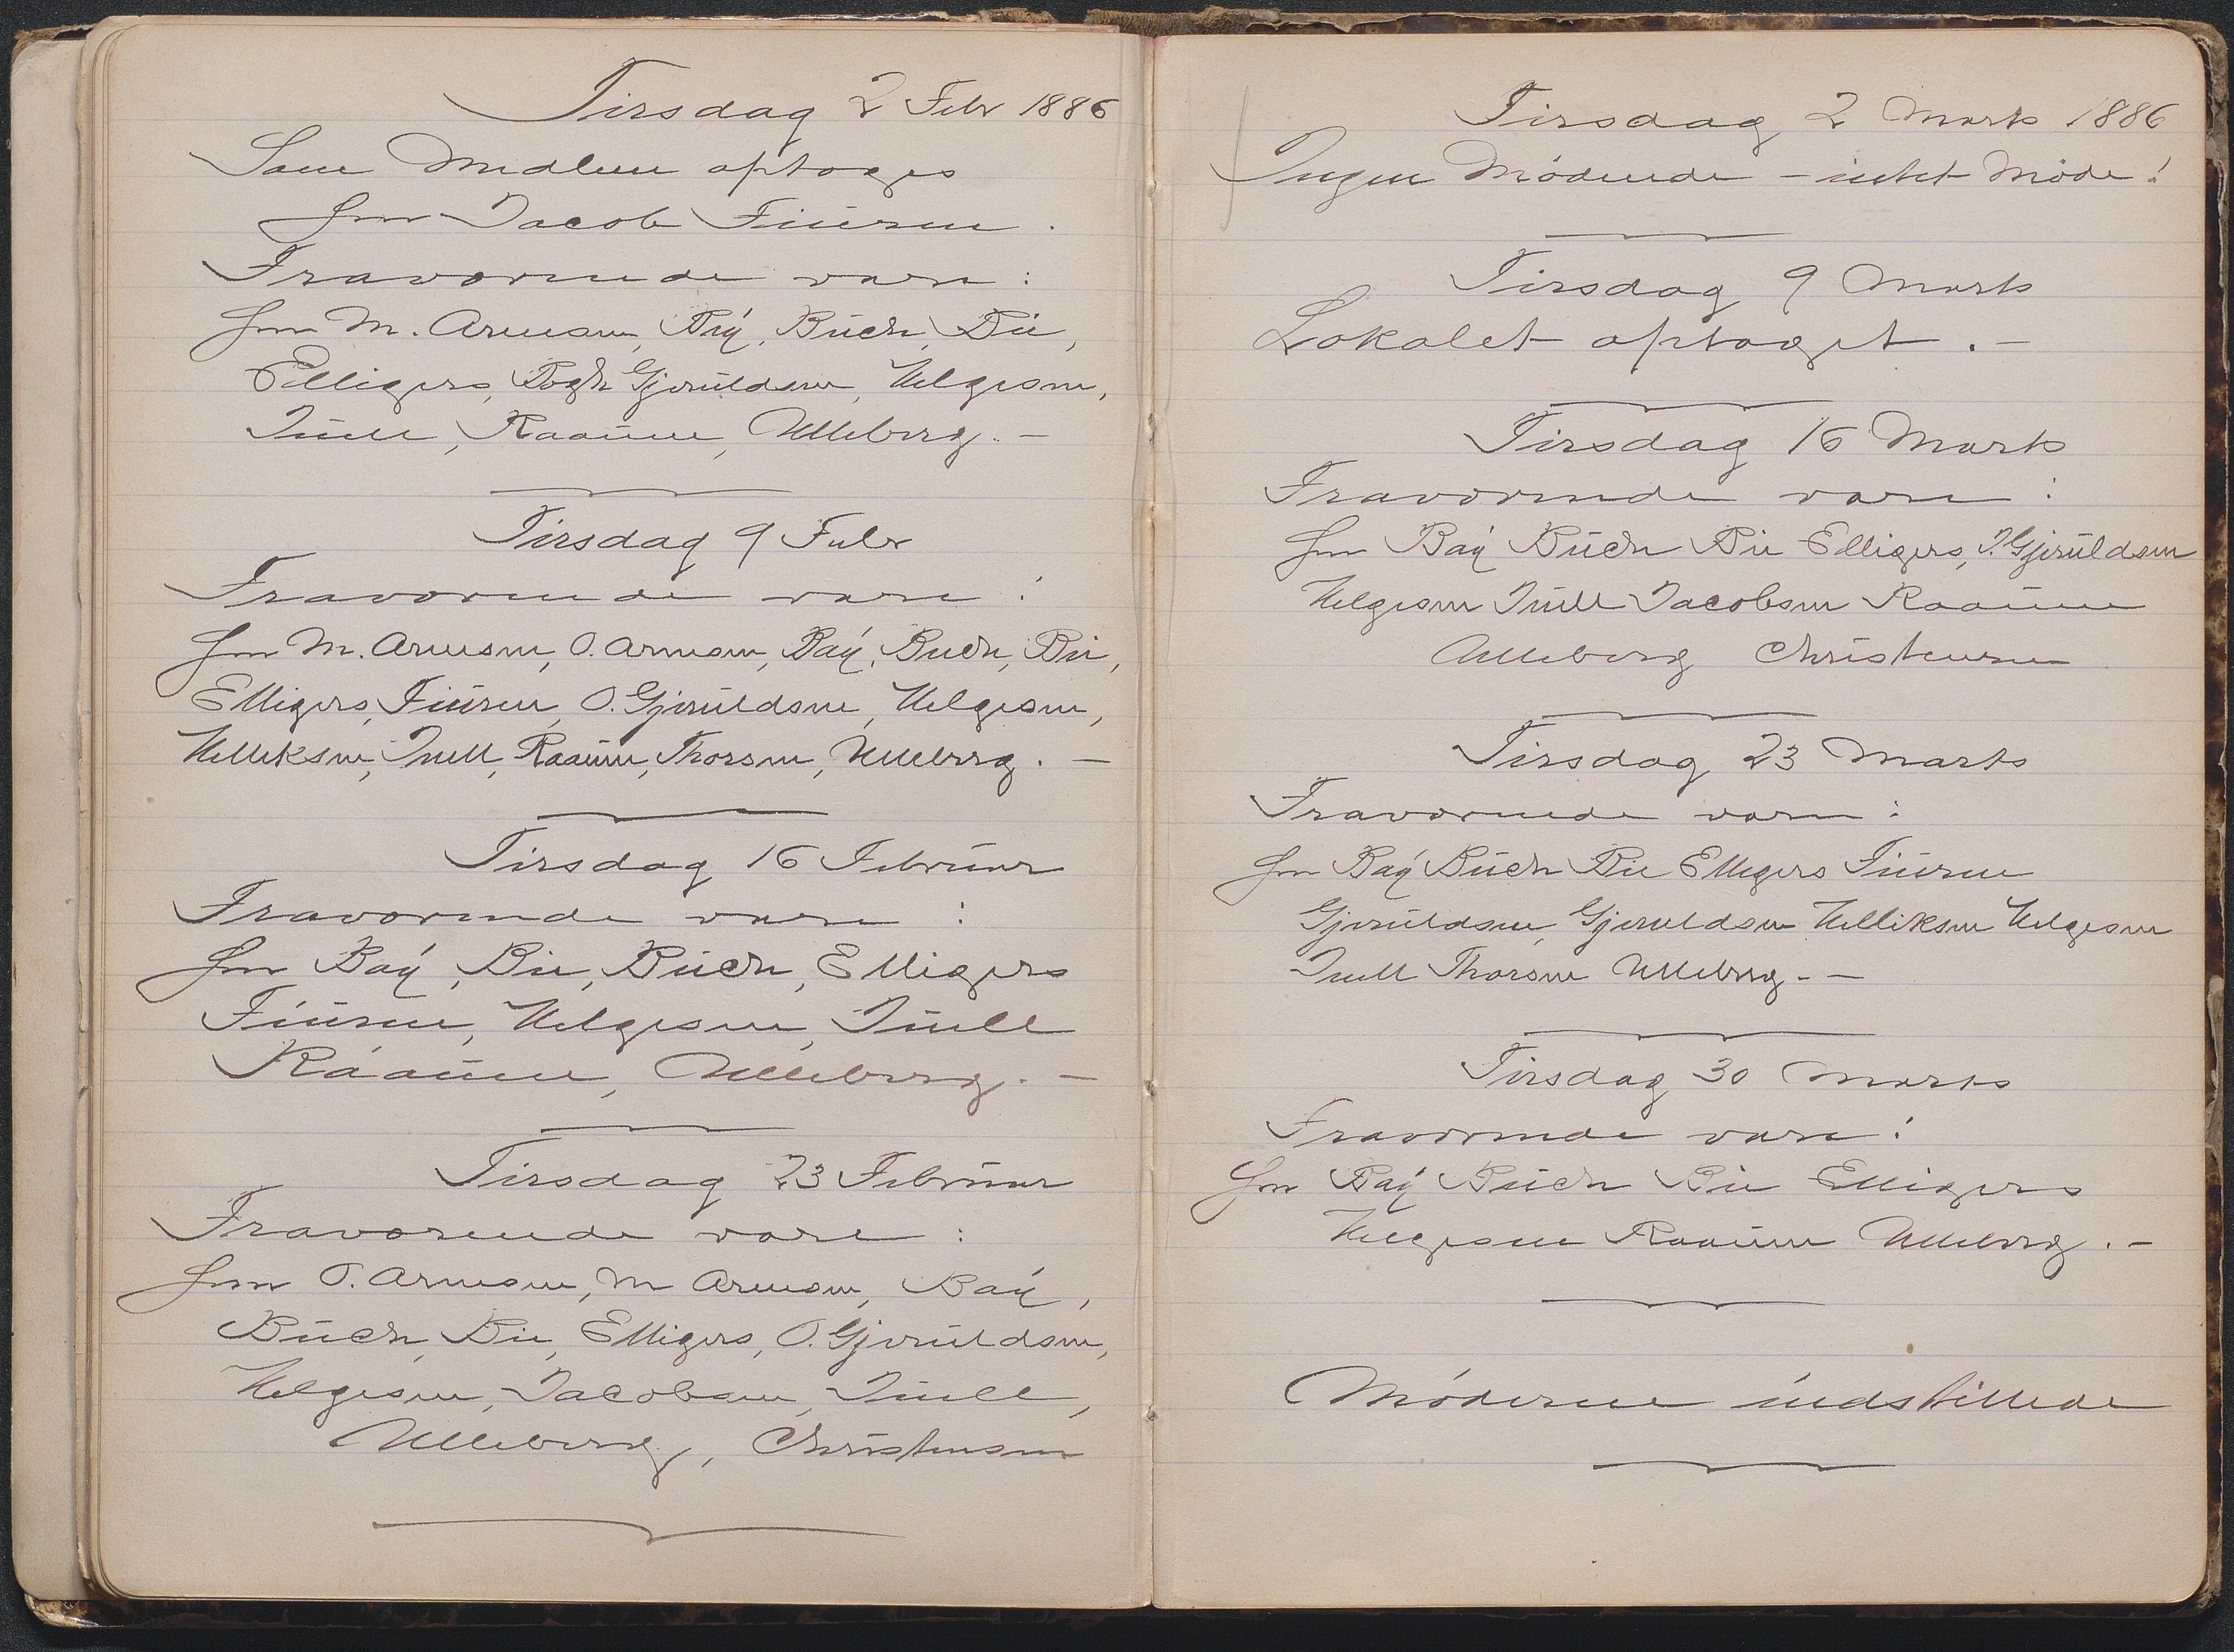 Tirsdag 2 Febr 1886
Som Medlem optoges
Hrr Jacob Fürsen.
Fraværende vare:
Hrr M. Arnesen, Bay, Buch, Bie,
Elligers, Gjeruldsen, Helgesen,
Juell, Raaum, Ulleberg. –
Tirsdag 9 Febr
Fraværende vare:
Hrr M. Arnesen, O. Arnesen, Bay, Buch, Bie,
Elligers, Fürsen, O. Gjeruldsen, Helgesen,
Helliksen, Juell, Raaum, Thorsen, Ulleberg. –
Tirsdag 16 Februar
Fraværende vare:
Hrr Bay, Bie, Buch, Elligers
Fürsen, Helgesen, Juell
Raaum, Ulleberg. –
Tirsdag 23 Februar
Fraværende vare:
Hrr O. Arnesen, M Arnesen, Bay,
Buch, Bie, Elligers, O. Gjeruldsen,
Helgesen, Jacobsen, Juell,
Ulleberg, Christensen
Tirsdag 2 Marts 1886
Ingen Mødende – intet Møde!
Tirsdag 9 Marts
Lokalet optaget. –
Tirsdag 16 Marts
Fraværende vare:
Hrr Bay Buch Bie Elligers, Gjeruldsen
Helgesen Juell Jacobsen Raaum
Ulleberg Christensen
Tirsdag 23 Marts
Fraværende vare:
Hrr Bay Buch Bie Elligers Fürsen
Gjeruldsen, Gjeruldsen Helliksen Helgesen
Juell Thorsen Ulleberg. –
Tirsdag 30 Marts
Fraværende vare:
Hrr Bay Buch Bie Elligers
Helgesen Raaum Ulleberg. –
Møderne indstillede